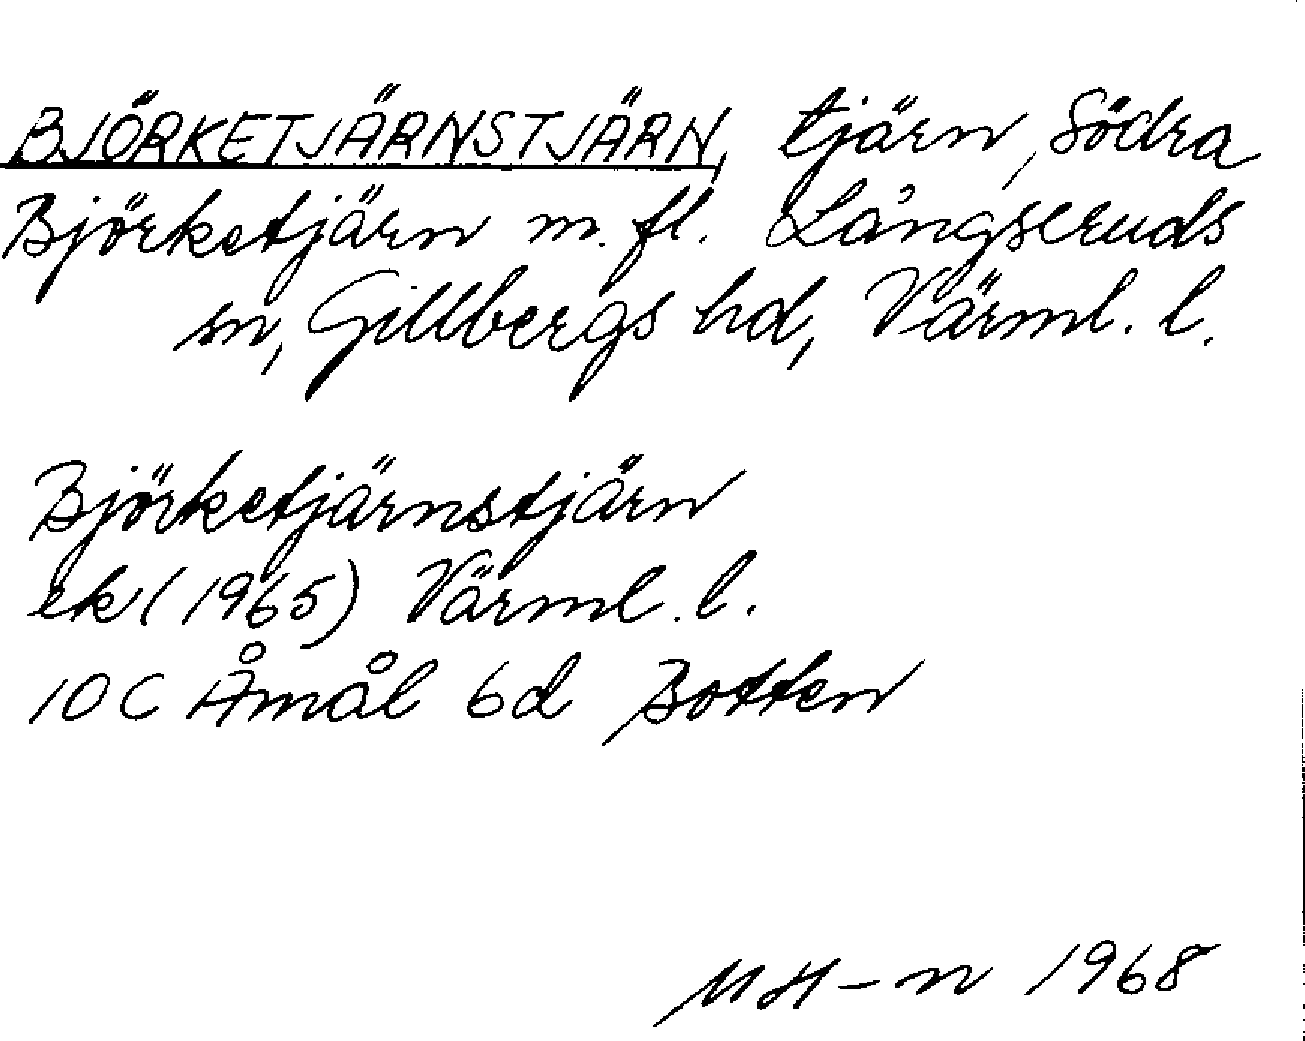 BJÖRKETJÄRNSTJÄRN, tjärn, Södra
Björketjärn m. fl. Långseruds
sn, Gillbergs hd, Värml. l.
Björketjärnstjärn
ek (1965) Värml. l.
10 C Åmål 6d Botten
MH-n 1968